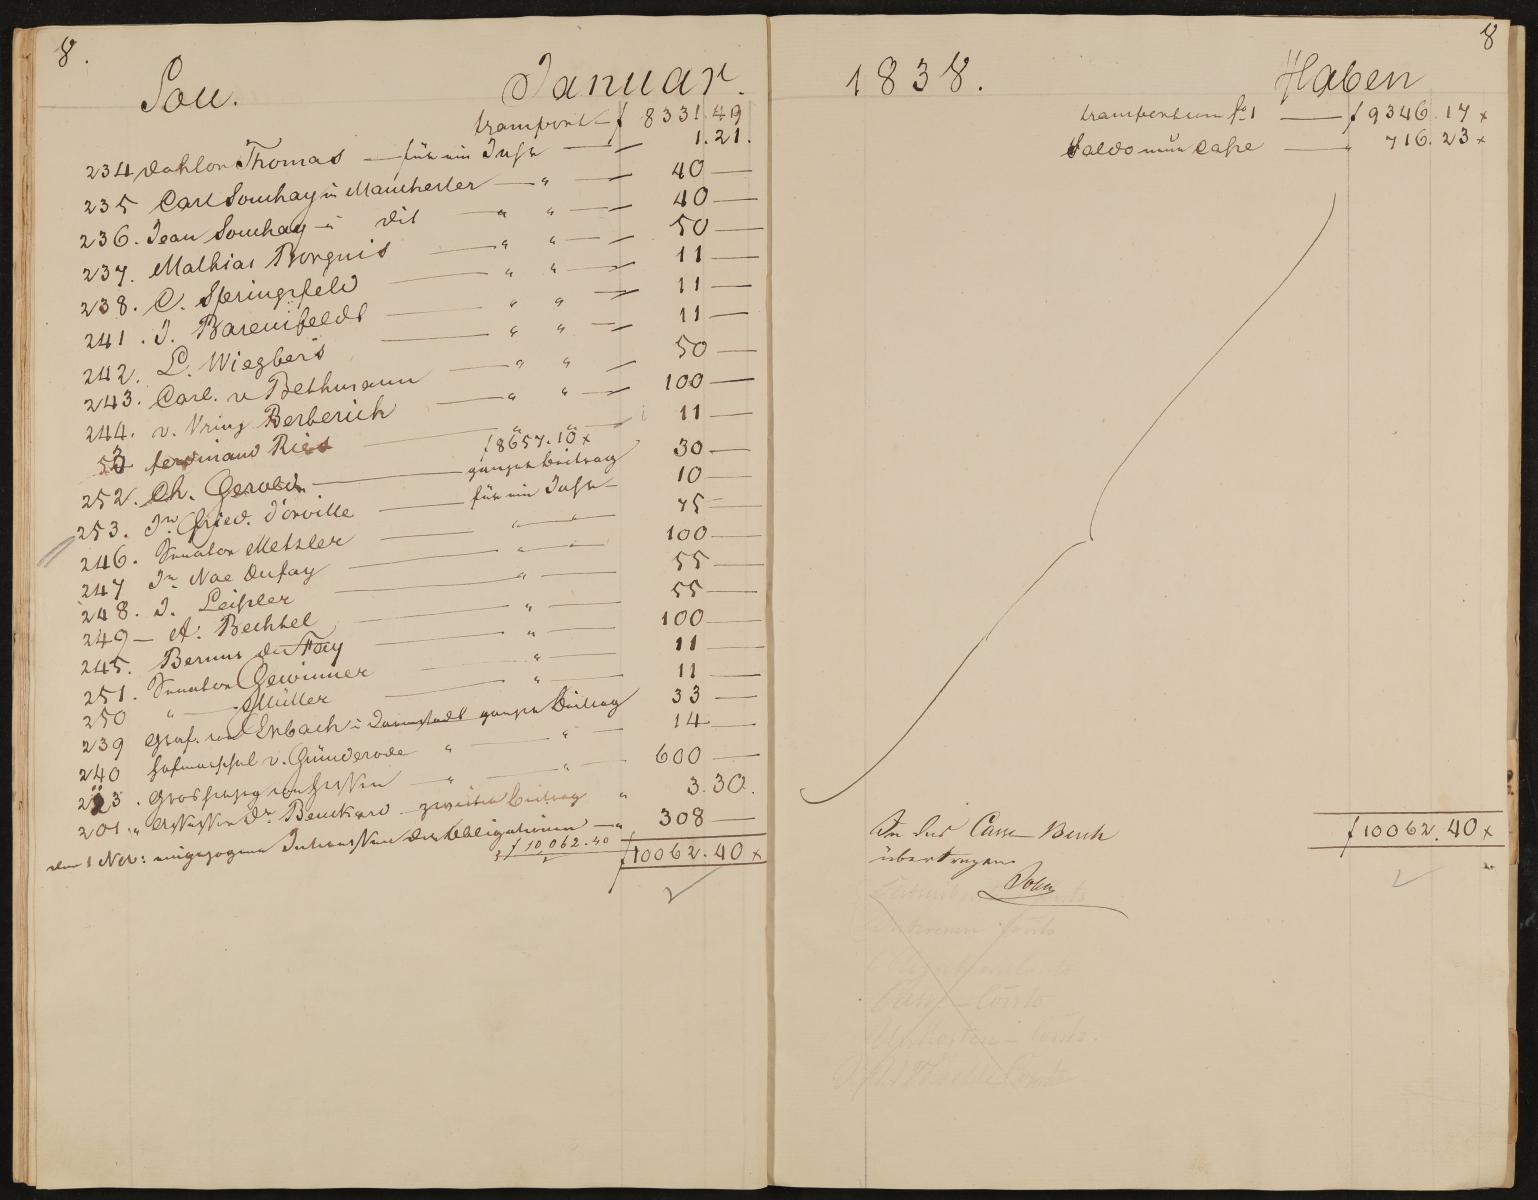 8.
Soll. Januar.
transport f 8331.49
234 Dahlon Thomas — für ein Jahr — 1.21.
235 Carl Souchay in Manchester — " — 40 —
236. Jean Souchay in dit " " — 40 —
237. Mathias Borgnis — " " — 50 —
238. C. Springsfeld — " " — 11 —
241. J. Barensfeldt — " " — 11 —
242. L. Wiegbers — " " — 11 —
243. Carl. v Bethmann — " " — 50 —
244. v. Vring Berberich — " " — 100 —
53 ferdinand Ries — " " — 11 —
f 8657.10 x
252. Ch. Gerold — ganzer beitrag 30 —
253. Jn. Fried. D'orville — für ein Jahr — 10 —
246. Senator Metzler — " " — 75 —
247 Jn Noe Dufay — " — 100 —
248. J. Leißler — " — 55 —
249 — A. Bechtel — " — 55 —
245. Bernus du Fay — " — 100 —
251. Senator Gewinner — " — 11 —
250 " — Müller — " — 11 —
239 Graf. von Erbach in Darmstadt ganzer Beitrag 33 —
240 hofmarschal v. Günderode " — " — 14 —
223. Grosherzog von Hessen — " — " — 600 —
201. " Dr. Beuckard zweiter beitrag " 3.30.
den 1 Nov: eingezogene Interessen der Obligationen — " 308 —
f 10,062.40
f 10062.40 x
8
1838. Haben
transport von fo 1 — f 9346.17 x
Saldo nun Casse — " 716.23 x
In das Casse Buch f 10062.40 x
übertragen
Interessen Conto
Casse — Conto
Unkosten — Conto.